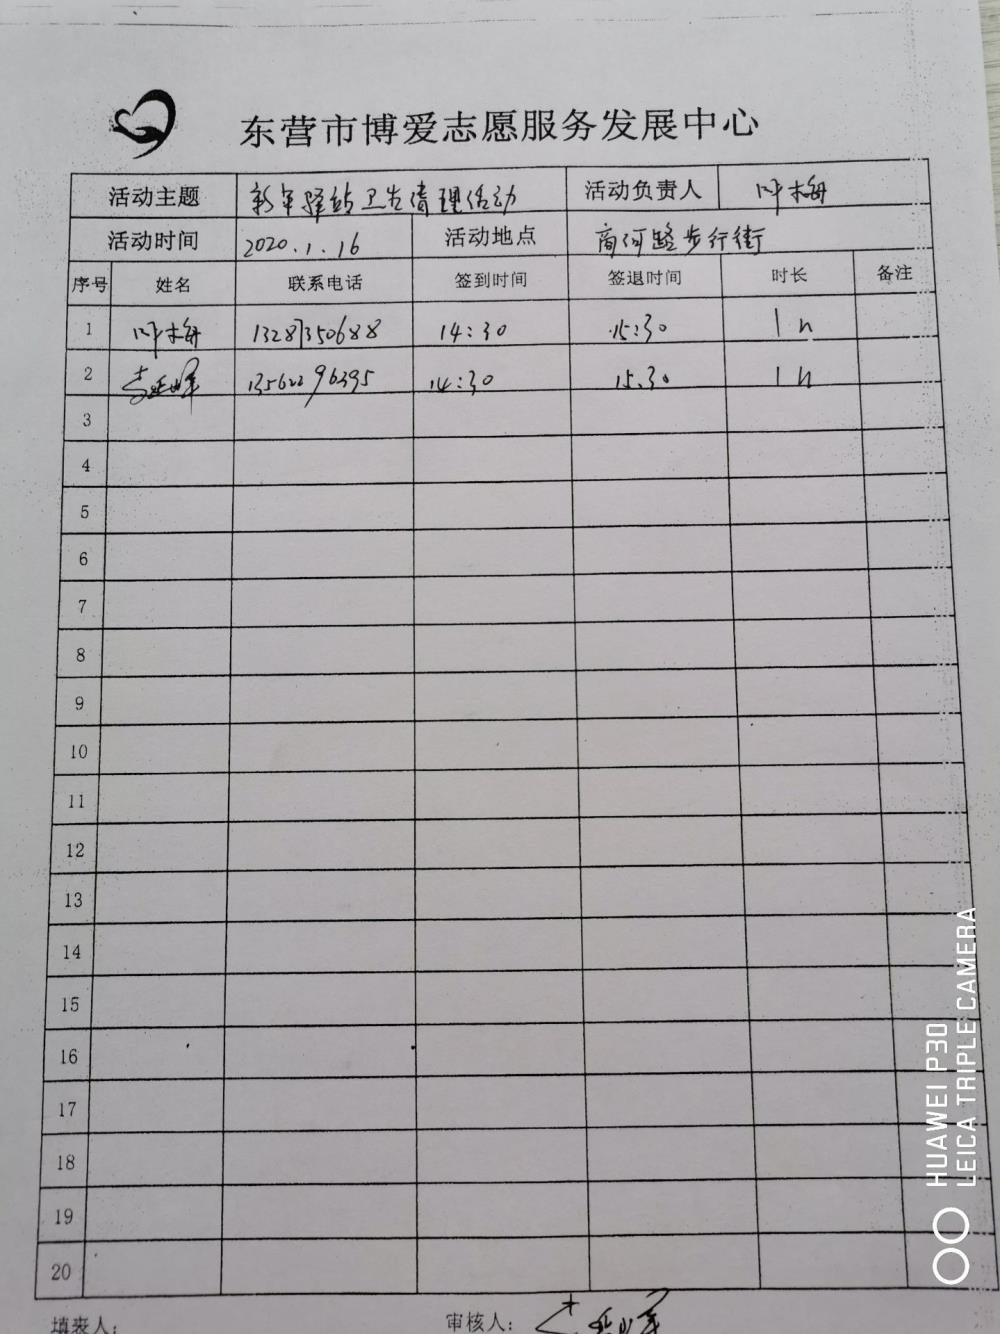 东营市博爱志愿服务发展中心
活动主题 新年驿站卫生清理活动 活动负责人 叶梅
活动时间 2020.1.16 活动地点 商河路步行街
序号 姓名 联系电话 签到时间 签退时间 时长 备注
1 叶梅 13287350688 14:30 15:30 1h
2 14:30 15.30 1h
3
4
5
6
7
8
9
10
11
12
13
14
15
16
17
18
19
20
填表人: 审核人:
HUAWEI P30
LEICA TRIPLE CAMERA